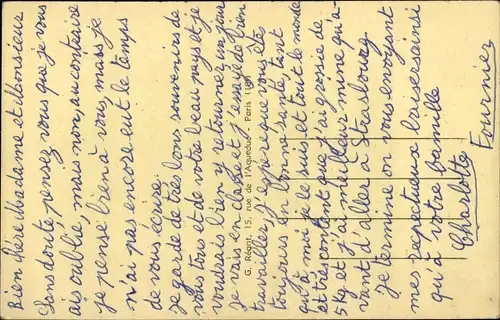 Bien chère Madame et Monsieur
Sans doute pensez vous que je vous
ais oublié, mais non, au contraire
je pense bien à vous, mais je
n'ai pas encore eut le temps
de vous écrire.
Je garde de très bons souvenirs de
vous tous et de votre beau pays et je
voudrais bien y retourner un jour
je vais en classe et j'essaye de bien
travailler, j'espère que vous ête
toujours en bonne santé, tant
qu'à moi je le suis et tout le monde
et très content que j'ai grossie de
5kg et j'ai meilleur mine qu'a-
vant d'aller à Strasbourg
Je termine en vous envoyant
mes respectueux baisers ainsi
qu'à votre famille
Charlotte
Fournier
G. Réant, 15, rue de l'Aqueduc, Paris